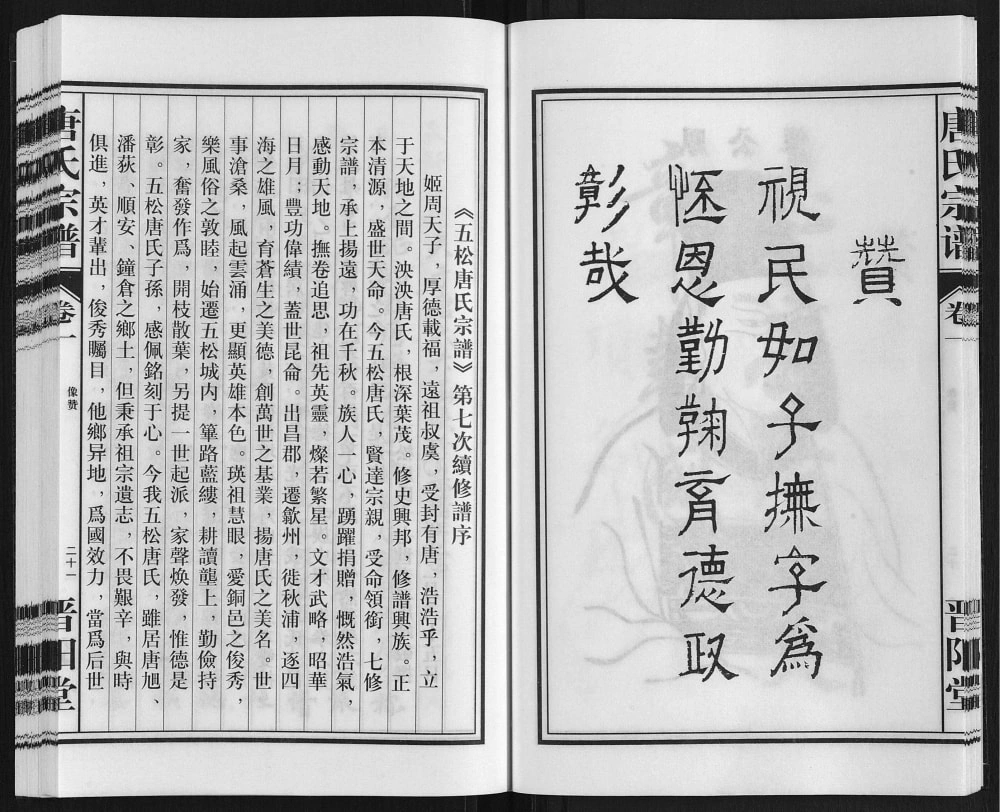 贊
視民如子撫字為
恆恩勤鞠育德政
彰哉
唐氏宗譜
卷一
晋陽堂
《五松唐氏宗譜》第七次續修譜序
姬周天子，厚德載福，遠祖叔虞，受封有唐，浩浩乎，立
于天地之間。泱泱唐氏，根深葉茂。修史興邦，修譜興族。正
本清源，盛世天命。今五松唐氏，賢達宗親，受命領銜，七修
宗譜，承上揚遠，功在千秋。族人一心，踴躍捐贈，慨然浩氣，
感動天地。撫卷追思，祖先英靈，燦若繁星。文才武略，昭華
日月；豐功偉績，蓋世昆侖。出昌郡，遷歙州，徙秋浦，逐四
海之雄風，育蒼生之美德，創萬世之基業，揚唐氏之美名。世
事滄桑，風起雲涌，更顯英雄本色。瑛祖慧眼，愛銅邑之俊秀，
樂風俗之敦睦，始遷五松城内，篳路藍縷，耕讀壟上，勤儉持
家，奮發作爲，開枝散葉，另提一世起派，家聲焕發，惟德是
彰。五松唐氏子孫，感佩銘刻于心。今我五松唐氏，雖居唐旭、
潘荻、順安、鐘倉之鄉土，但秉承祖宗遺志，不畏艱辛，與時
俱進，英才輩出，俊秀矚目，他鄉异地，爲國效力，當爲后世
唐氏宗譜
卷一
像赞
二十一
晋陽堂